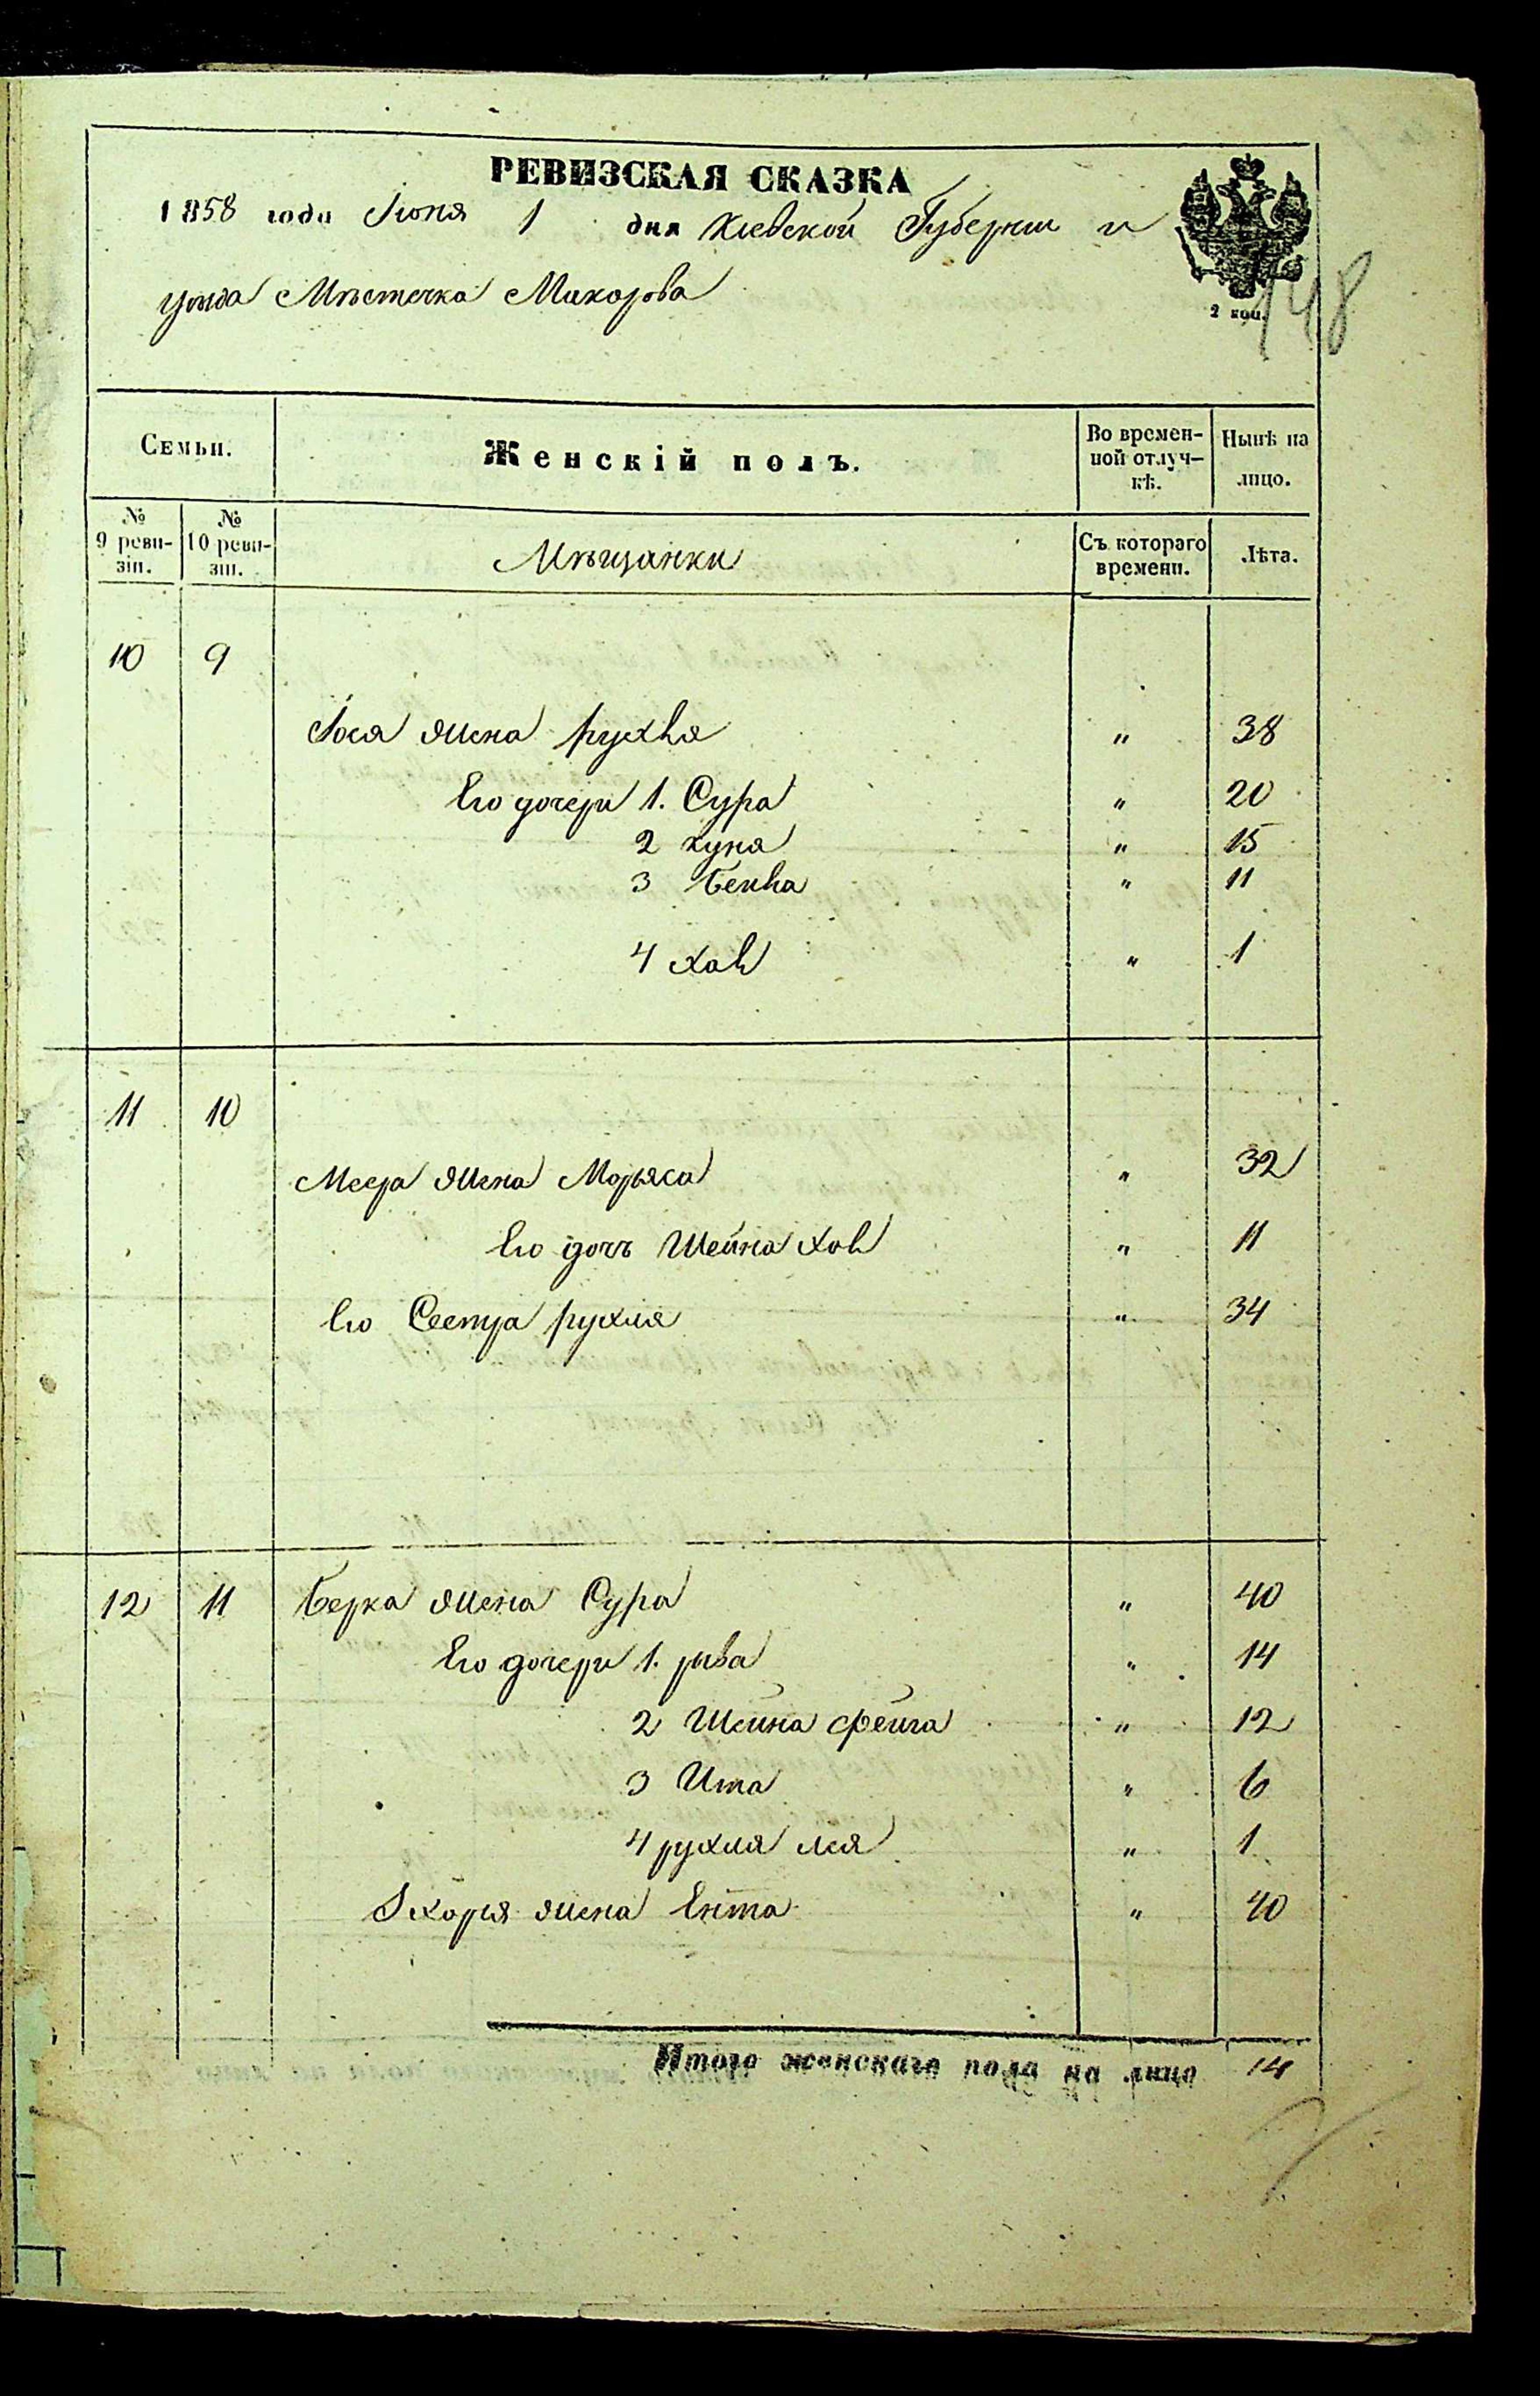 РЕВИЗСКАЯ СКАЗКА
1858 года Іюня 1 дня Кіевской Губерніи и
уѣзда Мѣстечка Макарова
2 коп.
148
Семьи.
Женскій полъ.
Во времен-
ной отлуч-
кѣ.
Нынѣ на
лицо.
№
9 реви-
зіи.
№
10 реви-
зіи.
Мѣщанки
Съ котораго
времени.
Лѣта.
10 9
Іося жена рухля " 38
Его дочери 1. Сура " 20
2 хуна " 15
3 " 11
4 " 1
11 10
Меера жена Марьяса " 32
Его дочь Шейна " 11
Его Сестра рухля " 34
12 11 Берка жена Сура " 40
Его дочери 1. рива " 14
2 Шейна фейга " 12
3 Ита " 6
4 рухля лея " 1
жена Ента " 40
Итого женскаго пола на лицо 14